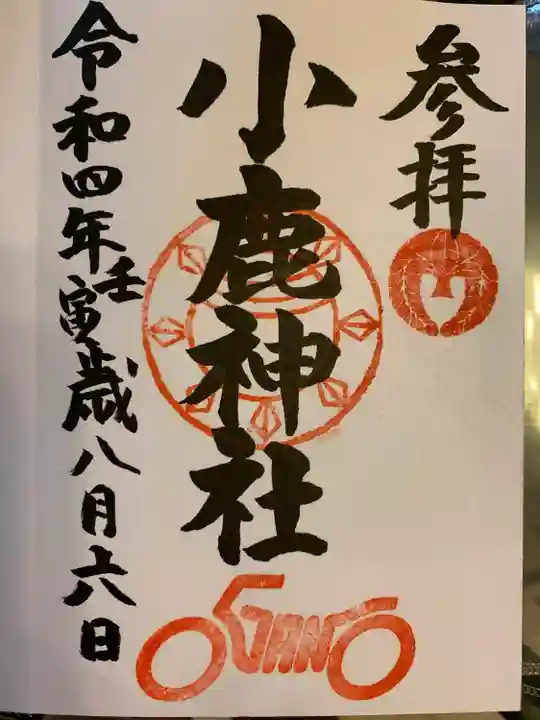 参拝
小鹿神社
令和四年壬寅歳八月六日
OGANO